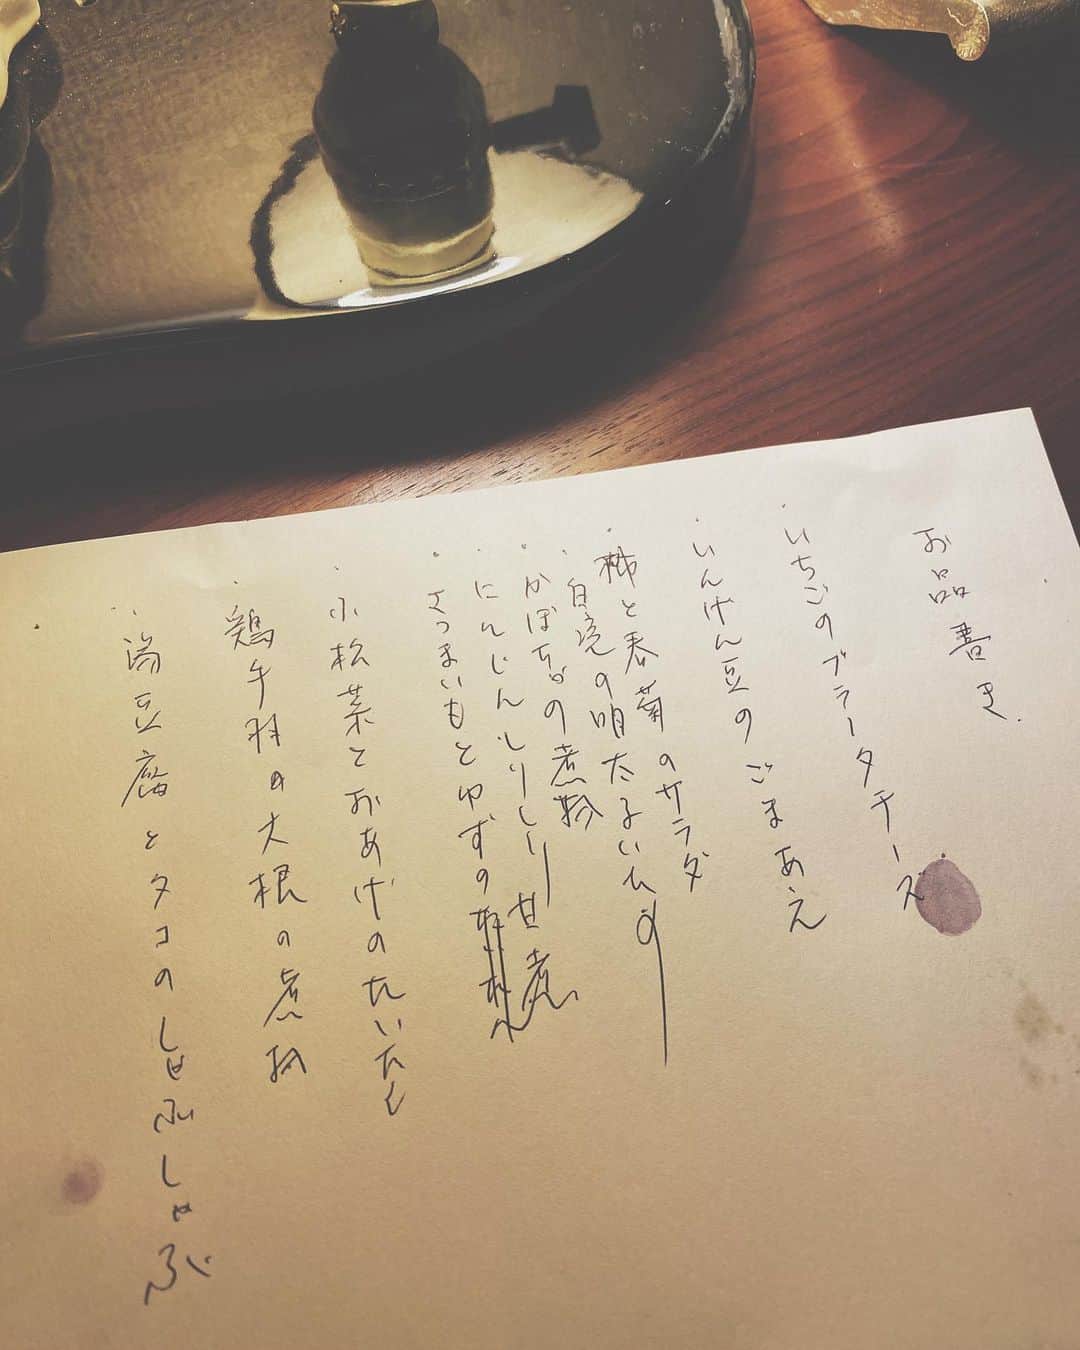 お品書き.
・いちごのブラータチーズ
・いんげん豆のごまあえ
・柿と春菊のサラダ
・白滝の明太子いため
・かぼちゃの煮物
・にんじんしりしり
・さつまいもとゆずの甘煮
・小松菜とおあげのたいたん
・鶏手羽の大根の煮物
・湯豆腐とタコのしゃぶしゃぶ